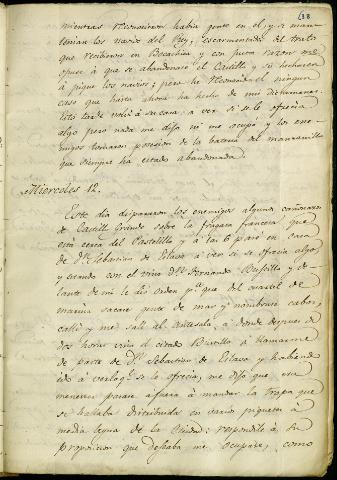 mientras reconociesen habia gente en el, y se man-
tenian los navios del Rey, escarmentados del trato
que recibieron en Bocachica y con pura razon me
opuse à que se abandonase el Castillo y se hechasen
à pique los navios; pero he reconocido el ningun
caso que hasta ahora ha hecho de mis dictamenes.
tarde volví à su casa, à ver si se le ofrecia
algo pero nada me dijo ni me ocupó y los ene-
migos tomaron posesion de la bateria del manzanillo
que siempre ha estado abandonada.
Miercoles 12.
Este dia dispararon los enemigos algunos cañonazos
de Castillo Grande sobre la fragata francesa que
está cerca del Pastelillo y à las 6 pasé en casa
de Dn. Sebastian de Eslava à ver si se ofrecia algo
y estando con el vino Dn. Fernando Bustillo y de-
lante de mi le dió orden pa. que del cuartel de
marina sacase gente de mar y nombrase cabos,
callé y me salí al Antesala, à donde despues de
dos horas vino el citado Bustillo à llamarme
de parte de Dn. Sebastian de Eslava y habiendo
ido à ver lo qe. se le ofrecia, me dijo que era
menester pasase afuera à mandar la tropa que
se hallaba distribuida en varios piquetes à
media legua de la Ciudad: respondile à su
proposicion que deseaba me ocupase, como